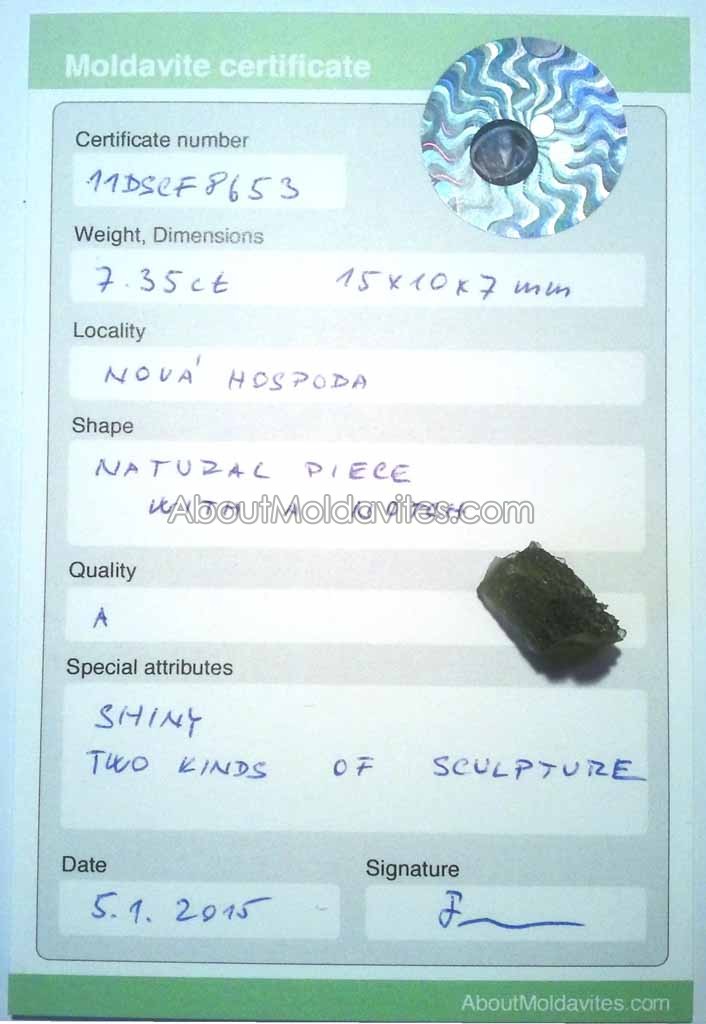 Moldavite certificate
Certificate number
11DSCF8653
Weight, Dimensions
7.35ct 15x10x7 mm
Locality
NOVÁ HOSPODA
Shape
NATURAL PIECE
WITH A NOTCH
AboutMoldavites.com
Quality
A
Special attributes
SHINY
TWO KINDS OF SCULPTURE
Date
Signature
5.1.2015
AboutMoldavites.com